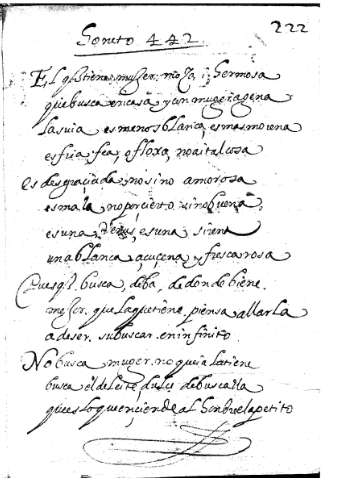 222
Soneto 442
El q̃ tiene muger moza i hermosa
que busca en casa y con muger agena
la suia es menos blanca, es mas morena
es fria, fea, o floxa, no ai tal cosa
es desgraciada, no sino amorosa
es mala, no por cierto, sino buena
es una Venus, es una sirena
una blanca açuçena, y fresca rosa
Pues q̃ busca, de ba, de donde biene
meger que la que tiene piensa allarla
a de ser su buscar en infinito
No busca muger no que ia la tiene
busca el deleite, dulce de buscalla
que es lo que enciende al hombre el apetito